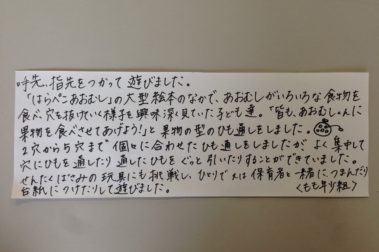 手先、指先をつかって遊びました。
「はらぺこあおむし」の大型絵本のなかで、あおむしがいろいろな食物を
食べ、穴を抜けていく様子を興味深く見ていた子ども達。"皆も、あおむしくんに
果物を食べさせてあげよう!"と果物の型のひも通しをしました。
2穴から5穴まで個々に合わせたひも通しをしましたが、よく集中して
穴にひもを通したり通したひもをぐっと引いたりすることができていました。
せんたくばさみの玩具にも挑戦し、ひとりで又は保育者と一緒につまんだり
台紙につけたりして遊びました。
〈もも年少組〉